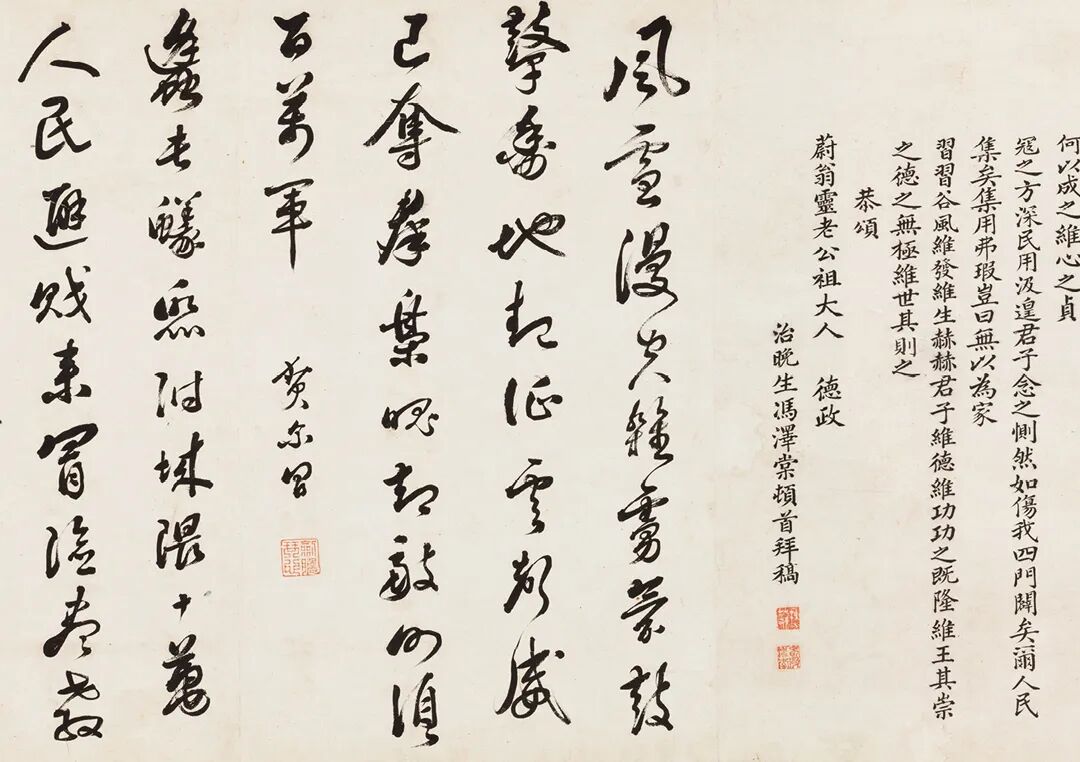 何以成之維心之貞
冦之方深民用汲遑君子念之惻然如傷我四門闢矣爾人民
集矣集用弗瑕豈曰無以為家
習習谷風維發維生赫赫君子維德維功功之既隆維王其崇
之德之無極維世其則之
恭頌
蔚翁靈老公祖大人 德政
治晚生馮澤棠頓首拜稿
風雪漫空雜霧鼓
鼙地起征雲威
已奪羣梟魄却敵何須
百萬軍
蠭屯蟻聚附城隈十萬
人民避賊來冒險盡教